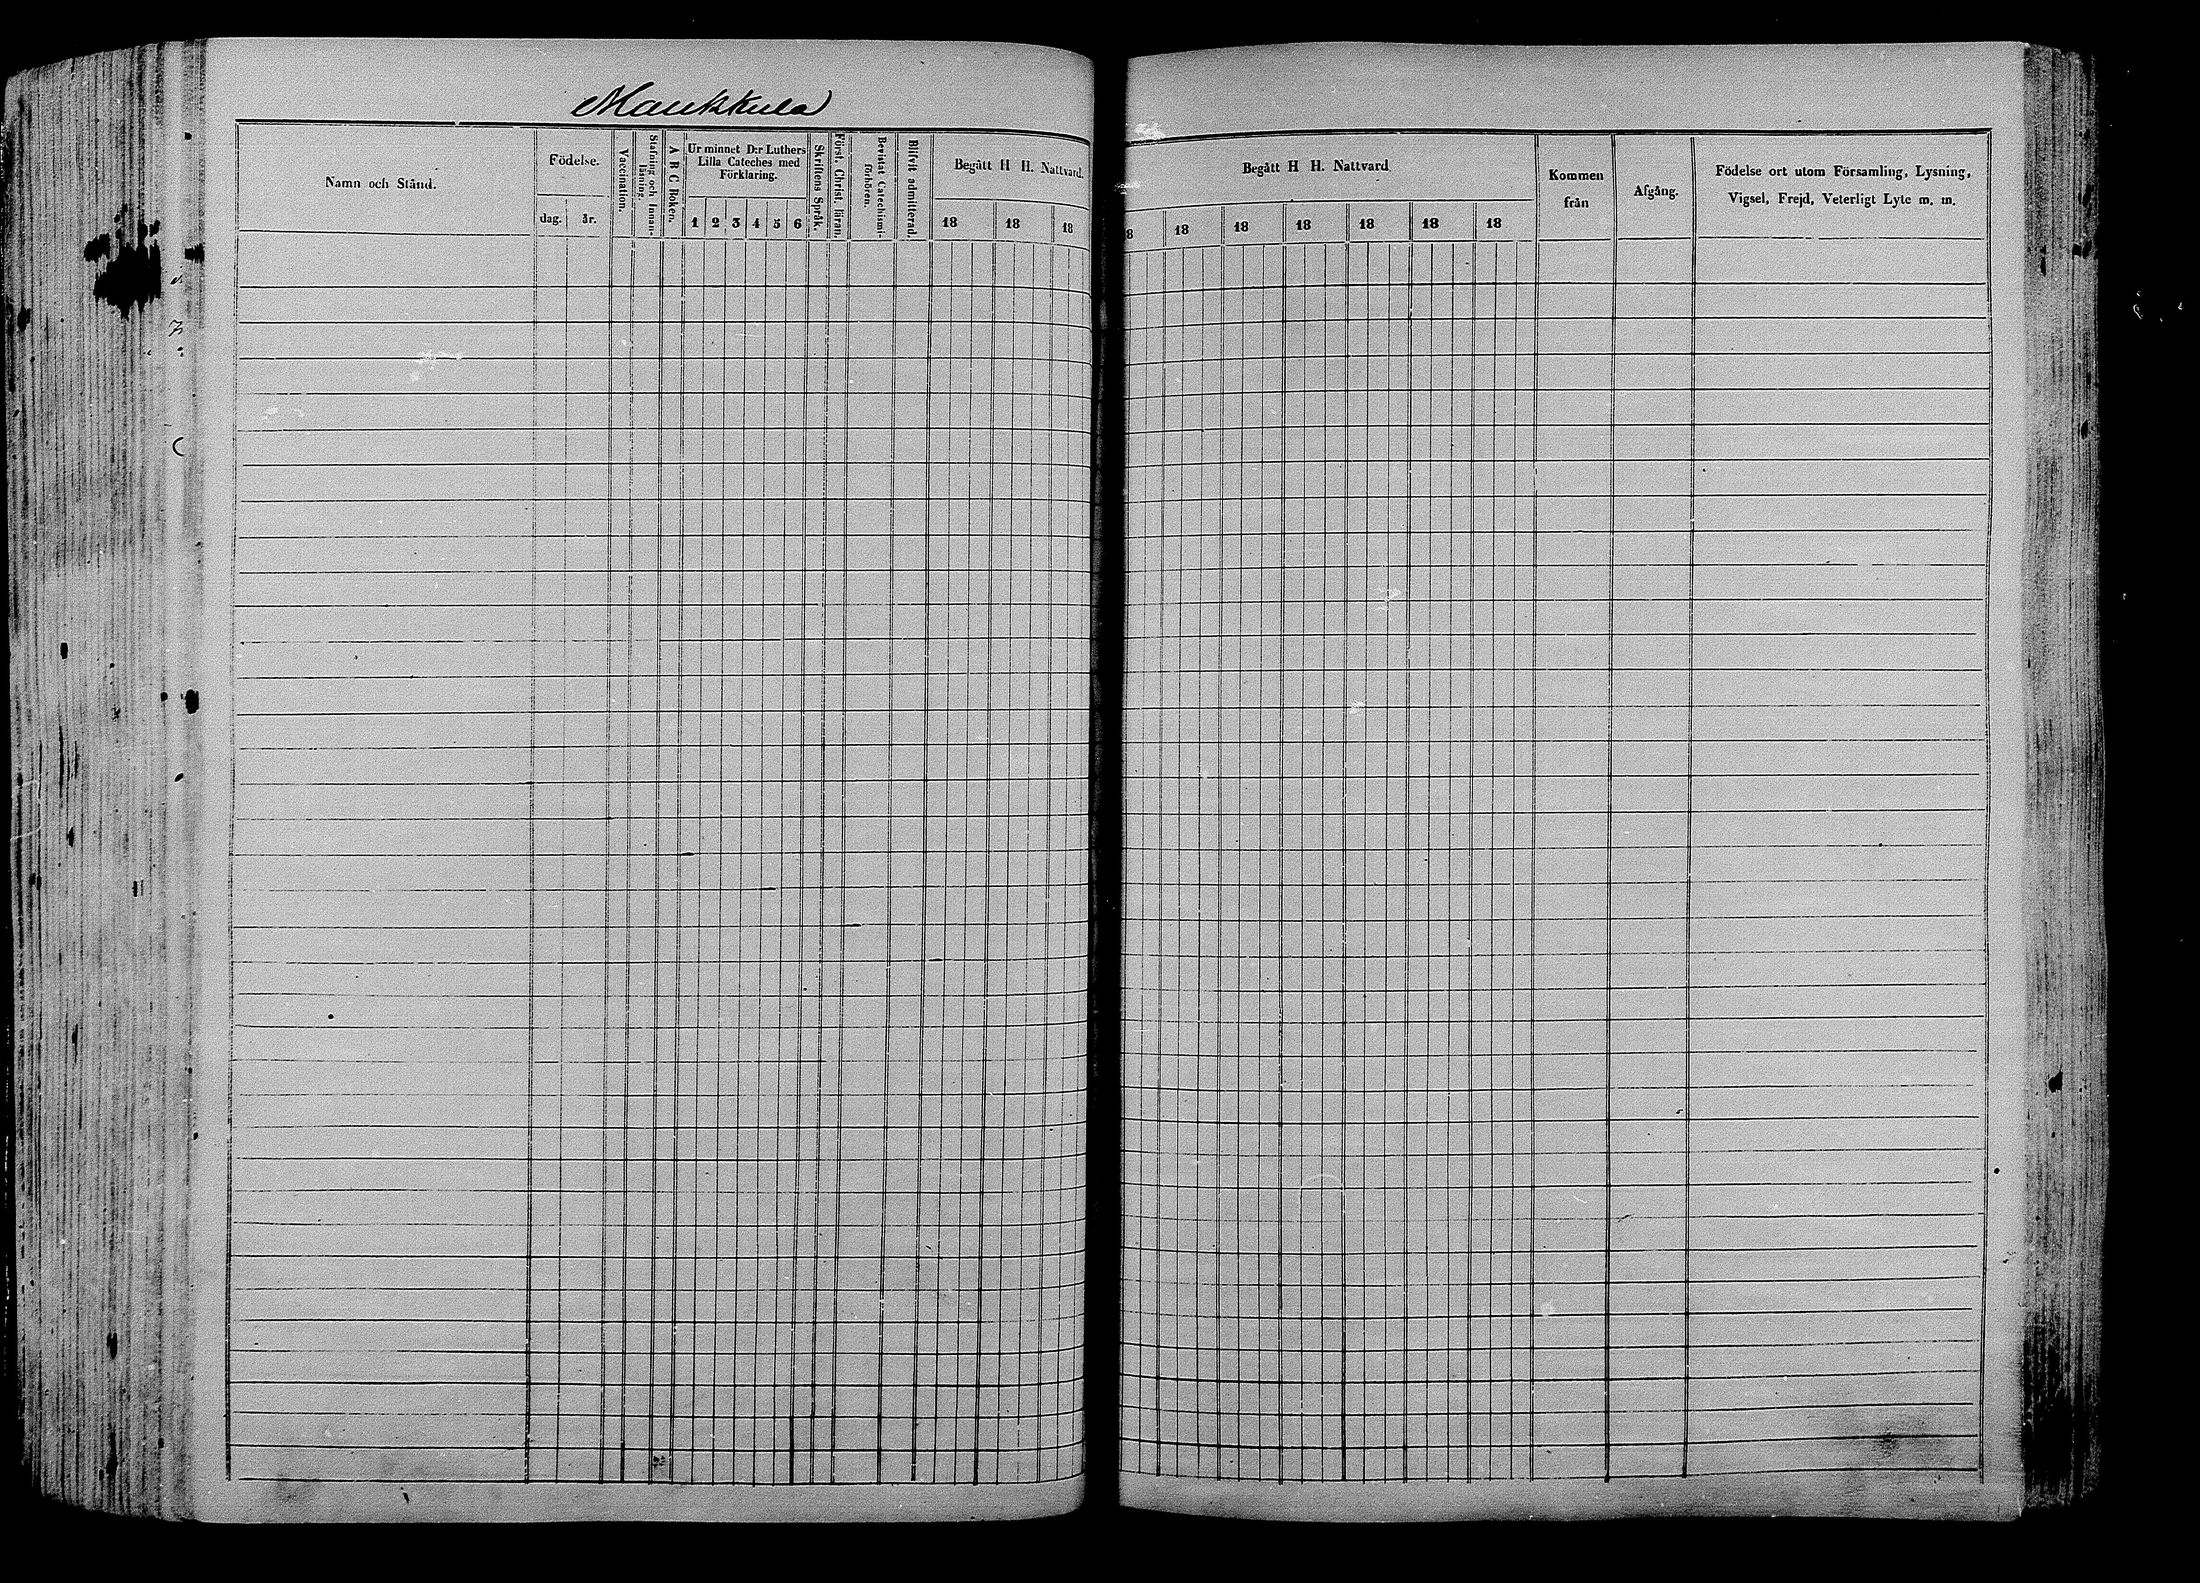 Maukkula
Namn och Stånd.
Födelse.
dag. år.
Vaccination.
Stafning och Innan-
läsning.
A B C Boken.
Ur minnet D:r Luthers
Lilla Cateches med
Förklaring.
1 2 3 4 5 6
Skriftens Språk.
Först. Christ. läran.
Bevistat Catechismi-
förhören.
Blifvit admitterad.
Begått H H. Nattvard.
18 18 18
Begått H H. Nattvard
8 18 18 18 18 18 18
Kommen
från
Afgång.
Födelse ort utom Församling, Lysning,
Vigsel, Frejd, Veterligt Lyte m. m.